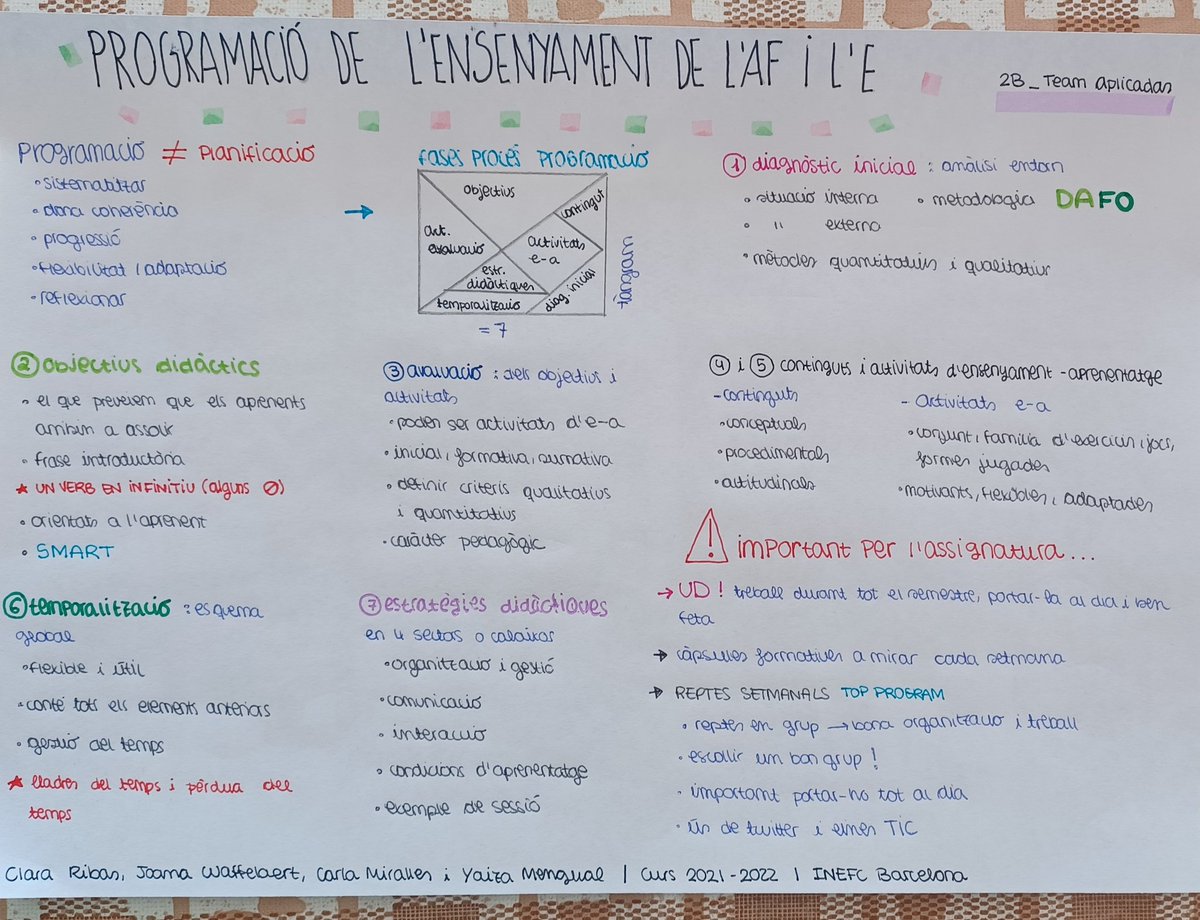 PROGRAMACIÓ DE L'ENSENYAMENT DE L'AF I L'E
2B_Team Aplicadas
Programació ≠ Planificació
• sistematitzar
• dona coherència
• progressió
• flexibilitat i adaptació
• reflexionar
→
Fases procés programació
objectius
contingut
act.
avaluació
activitats
e-a
estr.
didàctiques
diag. inicial
temporalització
tàngram
= 7
① diagnòstic inicial : anàlisi entorn
• situació interna • metodologia DAFO
• " externa
• mètodes quantitatius i qualitatius
② objectius didàctics
• el que preveiem que els aprenents
arribin a assolir
• frase introductòria
★ UN VERB EN INFINITIU (alguns Ø)
• orientats a l'aprenent
• SMART
③ avaluació : dels objectius i
activitats
• poden ser activitats d'e-a
• inicial, formativa, sumativa
• definir criteris qualitatius
i quantitatius
• caràcter pedagògic
④ i ⑤ continguts i activitats d'ensenyament-aprenentatge
- continguts
• conceptuals
• procedimentals
• actitudinals
- Activitats e-a
• conjunt, família d'exercicis, jocs,
formes jugades
• motivants, flexibles, adaptades
⑥ temporalització : esquema
global
• flexible i útil
• conté tots els elements anteriors
• gestió del temps
★ lladres del temps i pèrdua del
temps
⑦ estratègies didàctiques
en 4 sectors o calaixos
• organització i gestió
• comunicació
• interacció
• condicions d'aprenentatge
• exemple de sessió
! important per l'assignatura...
→ UD! treball durant tot el semestre, portar-la al dia i ben
feta
→ càpsules formatives a mirar cada setmana
→ REPTES SETMANALS TOP PROGRAM
• reptes en grup → bona organització i treball
• escollir un bon grup!
• important portar-ho tot al dia
• ús de twitter i eines TIC
Clara Ribas, Joana Waffelaert, Carla Miralles i Yaiza Mengual | Curs 2021-2022 | INEFC Barcelona